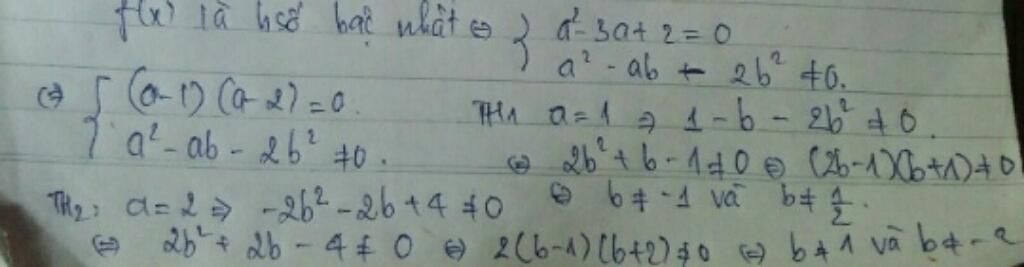 f(x) là hsố bậc nhất ⇔ { a² - 3a + 2 = 0
a² - ab - 2b² ≠ 0.
⇔ { (a-1)(a-2) = 0.
a² - ab - 2b² ≠ 0.
TH1 a = 1 ⇒ 1 - b - 2b² ≠ 0.
⇔ 2b² + b - 1 ≠ 0 ⇔ (2b-1)(b+1) ≠ 0
⇔ b ≠ -1 và b ≠ 1/2.
TH2: a = 2 ⇒ -2b² - 2b + 4 ≠ 0
⇔ 2b² + 2b - 4 ≠ 0 ⇔ 2(b-1)(b+2) ≠ 0 ⇔ b ≠ 1 và b ≠ -2